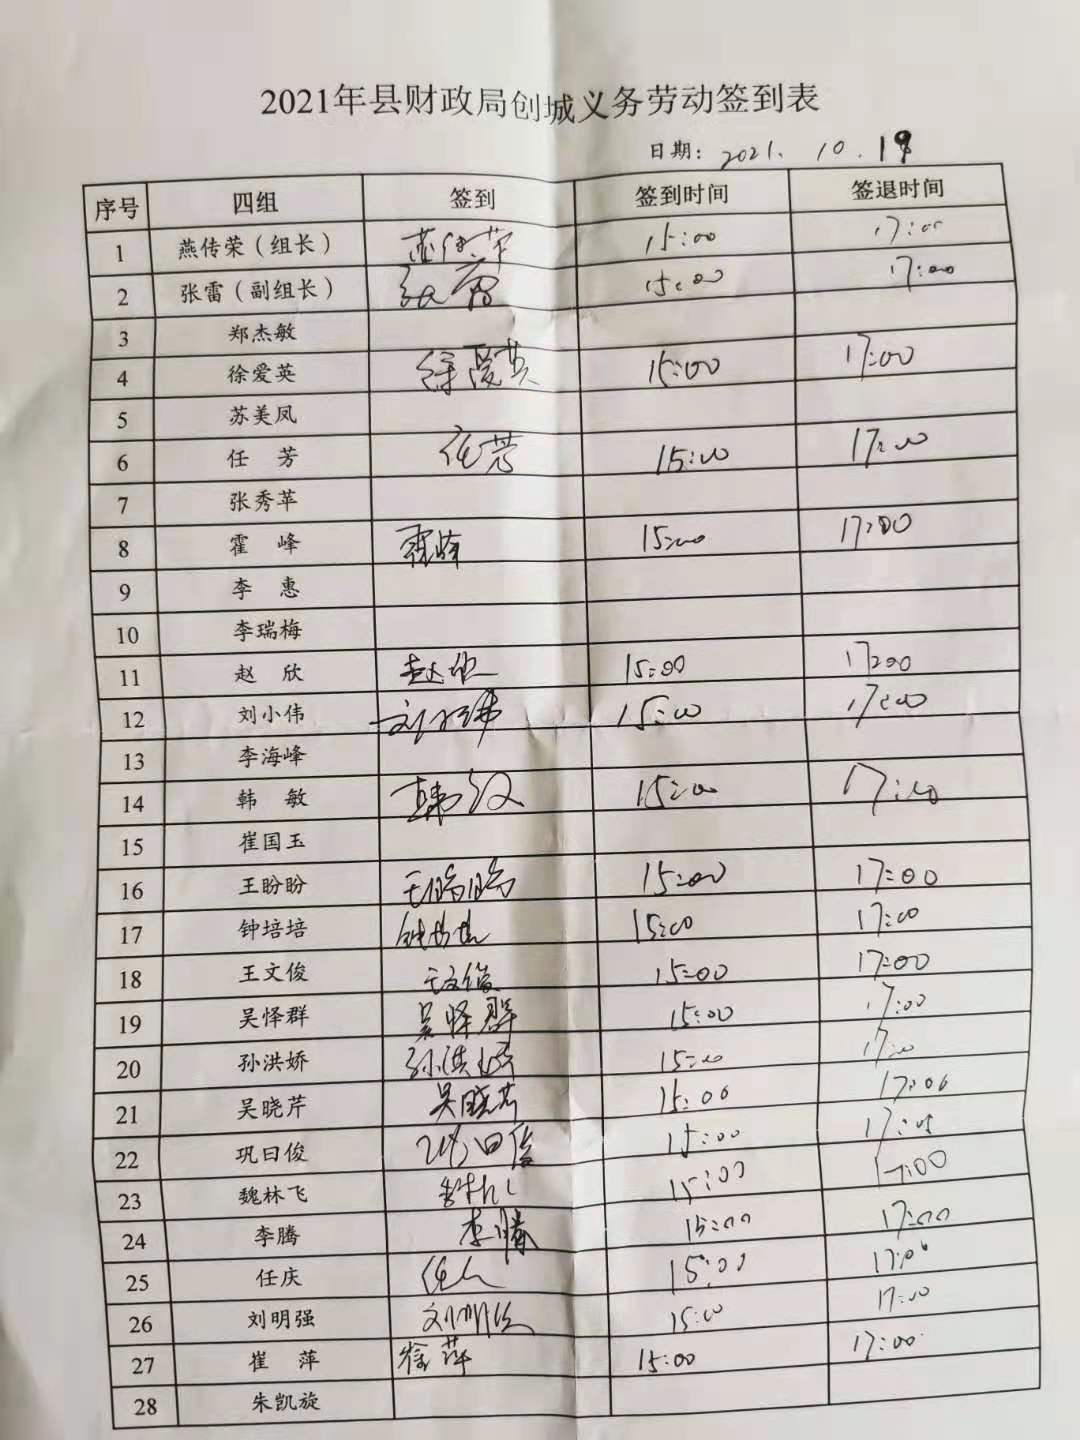 2021年县财政局创城义务劳动签到表
日期：2021.10.19
序号 四组 签到 签到时间 签退时间
1 燕传荣（组长） 燕传荣 15:00 17:00
2 张雷（副组长） 张雷 15:00 17:00
3 郑杰敏
4 徐爱英 徐爱英 15:00 17:00
5 苏美凤
6 任 芳 任芳 15:00 17:00
7 张秀苹
8 霍 峰 霍峰 15:00 17:00
9 李 惠
10 李瑞梅
11 赵 欣 赵欣 15:00 17:00
12 刘小伟 刘小伟 15:00 17:00
13 李海峰
14 韩 敏 韩敏 15:00 17:00
15 崔国玉
16 王盼盼 王盼盼 15:00 17:00
17 钟培培 钟培培 15:00 17:00
18 王文俊 王文俊 15:00 17:00
19 吴怿群 吴怿群 15:00 17:00
20 孙洪娇 孙洪娇 15:00 17:00
21 吴晓芹 吴晓芹 15:00 17:00
22 巩曰俊 巩曰俊 15:00 17:05
23 魏林飞 15:00 17:00
24 李腾 李腾 15:00 17:00
25 任庆 15:00 17:00
26 刘明强 刘明强 15:00 17:00
27 崔 萍 15:00 17:00
28 朱凯旋